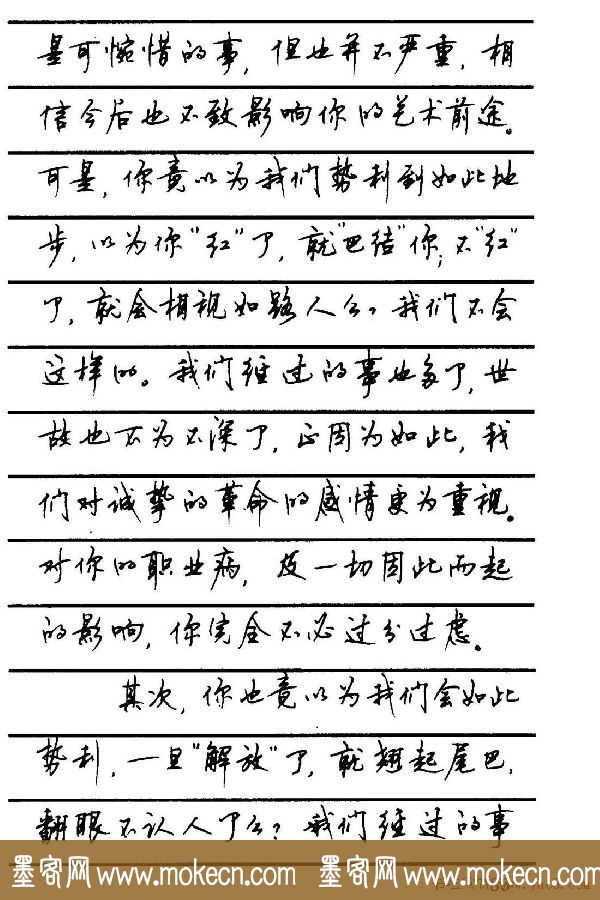 是可惋惜的事，但也并不严重，相
信今后也不致影响你的艺术前途。
可是，你竟以为我们势利到如此地
步，以为你“红”了，就“巴结”你；不“红”
了，就会相视如路人么？我们不会
这样的。我们经过的事也多了，世
故也不为不深了，正因为如此，我
们对诚挚的革命的感情更为重视。
对你的职业病，及一切因此而起
的影响，你完全不必过分过虑。
其次，你也竟以为我们会如此
势利，一旦“解放”了，就翘起尾巴，
翻眼不认人了么？我们经过的事
墨客网 www.mokecn.com 墨客网 www.mokecn.com